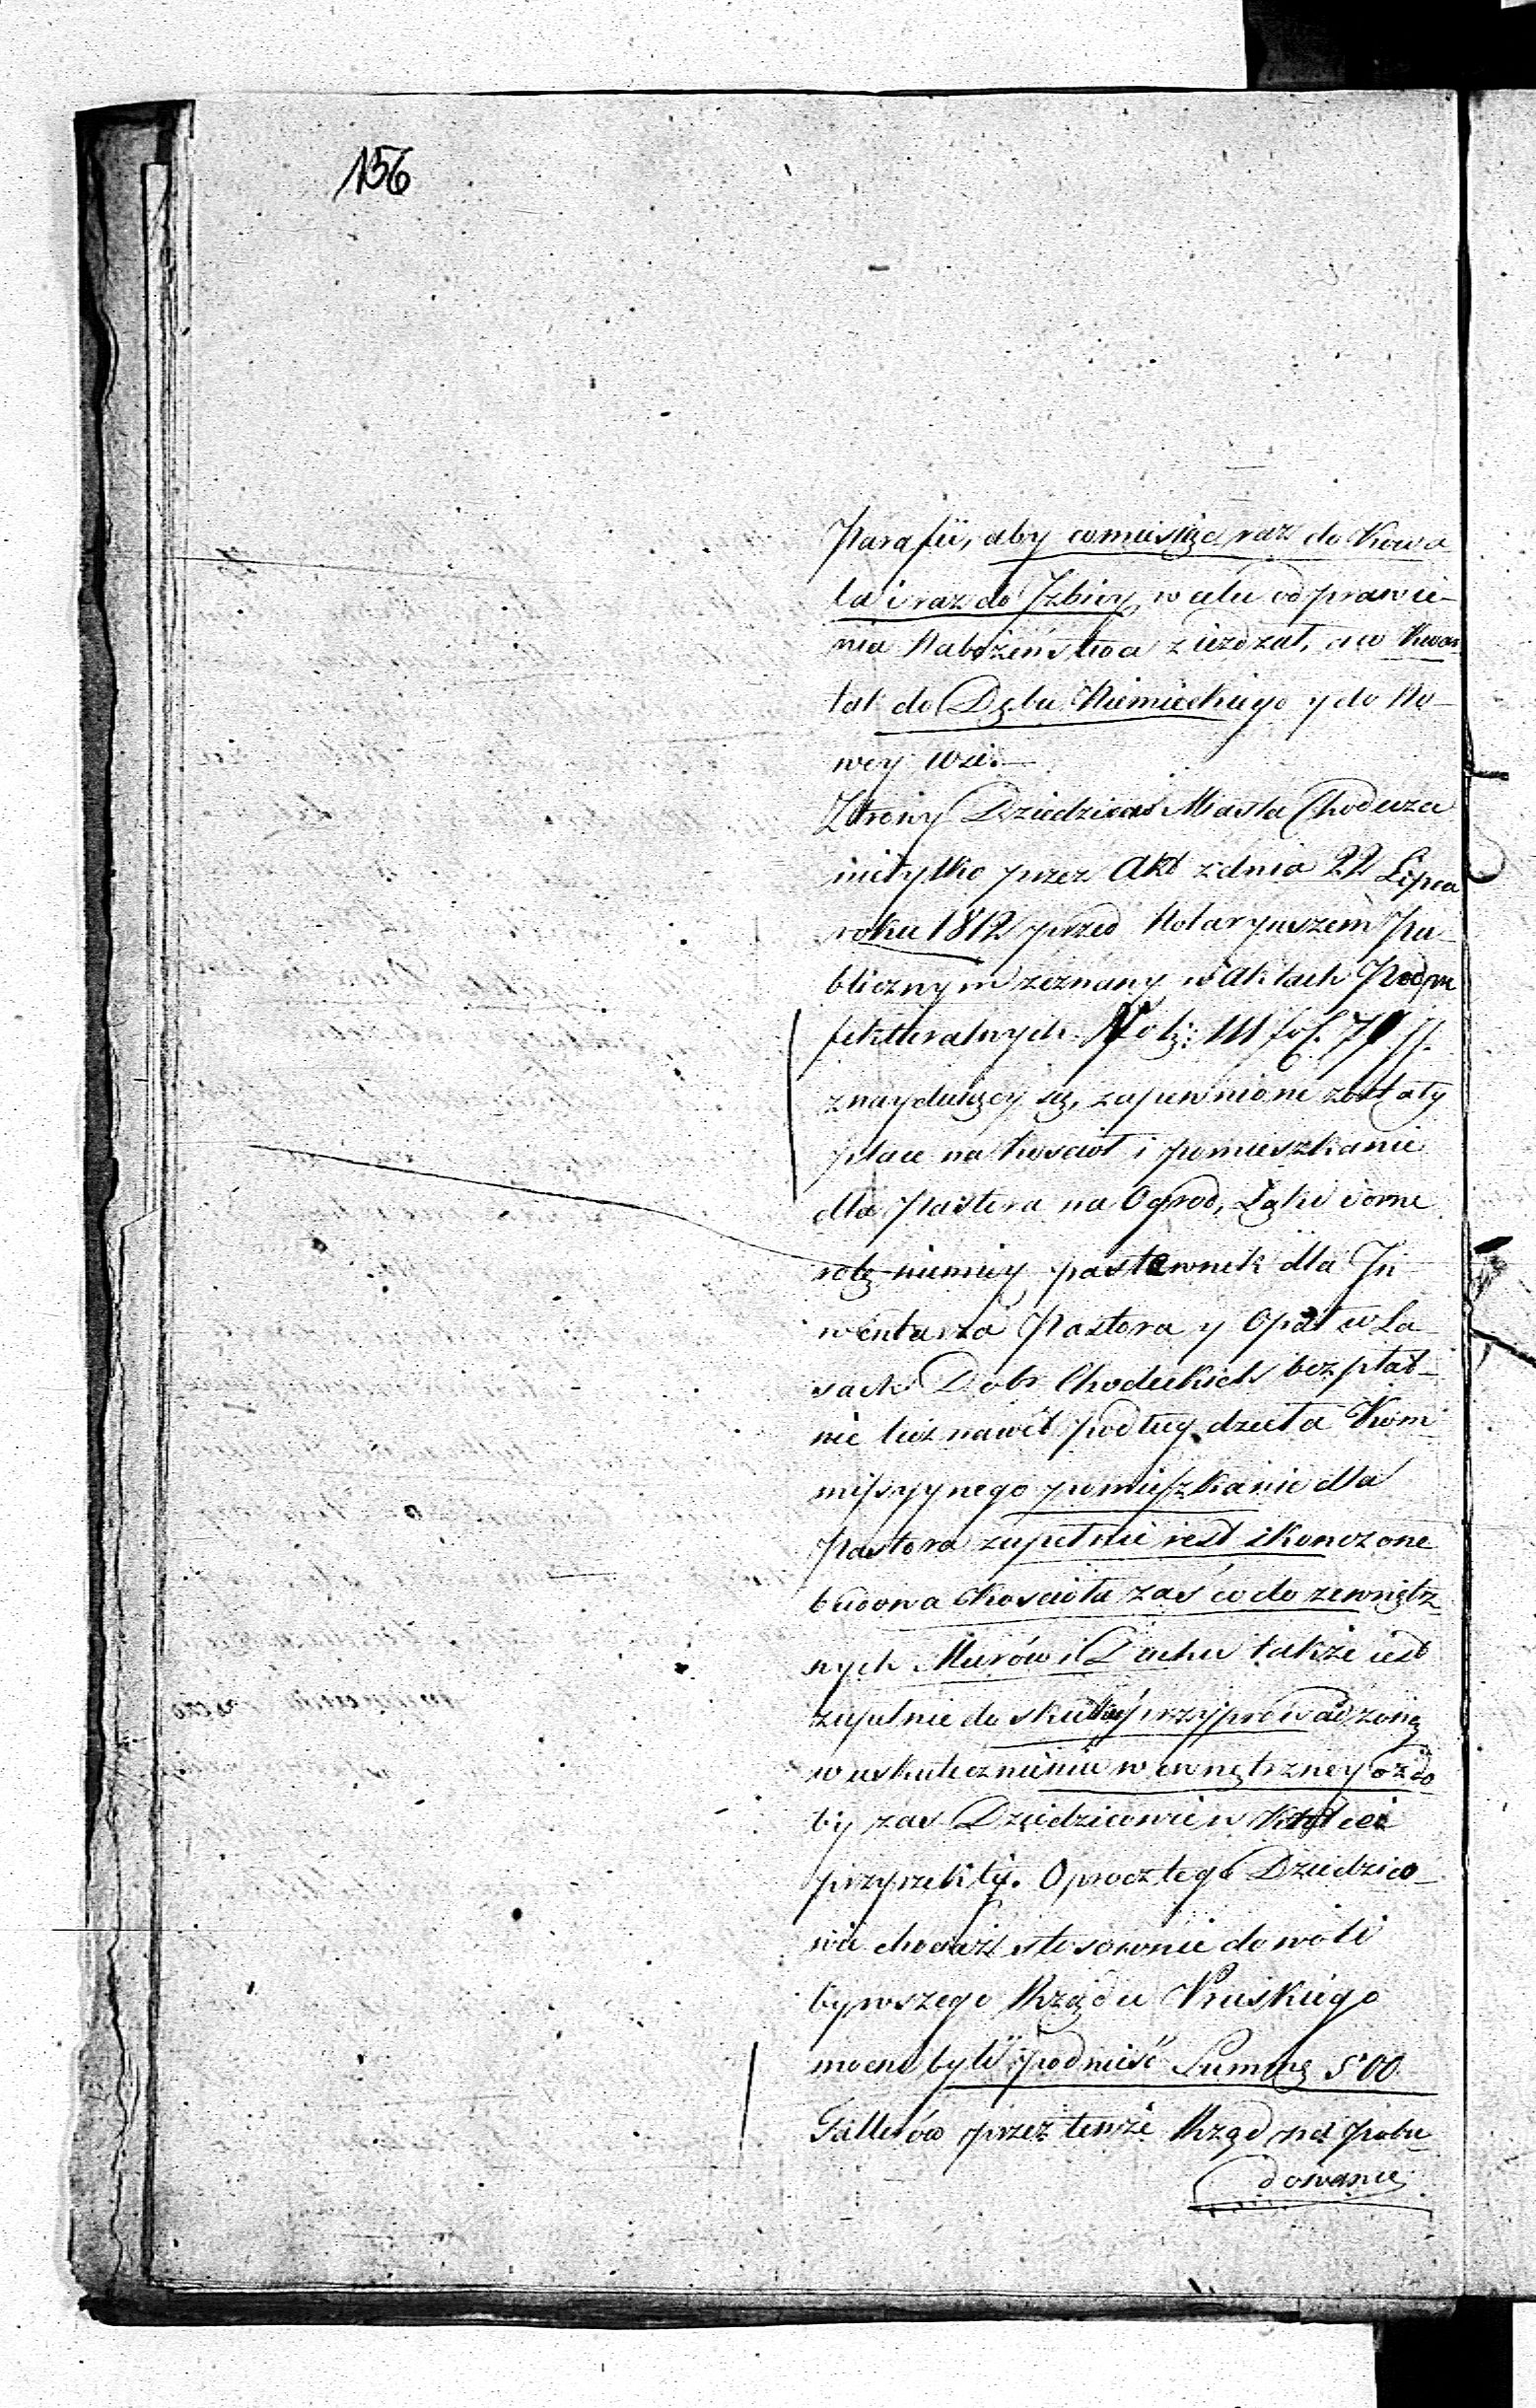 156
Parafii, aby comiesiąc raz do Kowa
la i raz do Izbicy, w celu odprawie-
nia Nabożeństwa ziezdzał, a co Kwar
tał do Dębu Niemieckiego y do No-
wey Wsi.—
Z strony Dziedzicow Miasta Chodecza
nietylko przez Akt z dnia 22 Lipca
roku 1812 przed Notaryuszem Pu
blicznym zeznany w Aktach Podpre
fekturalnych fol. 71
znayduiący się, zapewnione zostały
place na Kościoł i pomieszkanie
dla Pastora na Ogrod, Łąki i orne
rolę niemniey pastewnik dla In
wentarza Pastora y Opał w La
sach Dobr Chodeckich bezpłat-
nie lecz nawet podług dzieła Kom
missyynego pomieszkanie dla
Pastora zupełnie iest skonczone
budowa Kościoła zaś co do zewnętrz
nych Murów i Dachu także iest
zupełnie do skutku przyprowadzoną
w uskutecznieniu wewnętrzney ozdo
by zas Dziedzicowie w
przyrzekły. Oprocz tego Dziedzico-
wie chociaż stosownie do woli
bywszego Rządu Pruskiego
mocni byli podnieść Summę 500
Tallerów przez tenże Rząd na pobu
dowanie